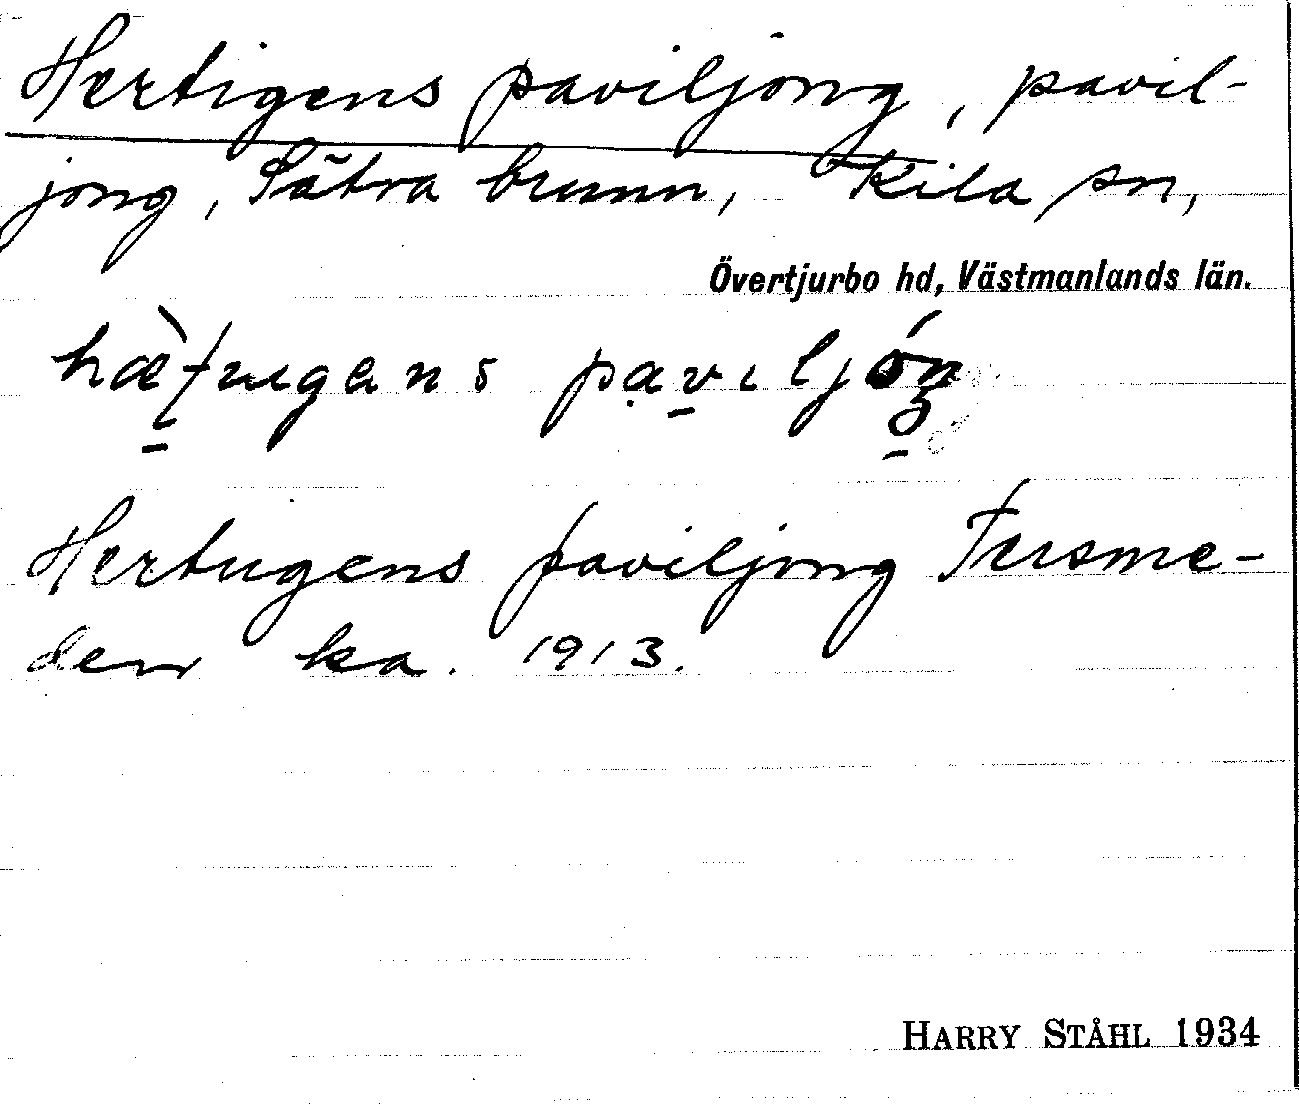 Hertigens paviljong, pavil-
jong, Sätra brunn, Kila sn,
Övertjurbo hd, Västmanlands län.
paviljóŋ
Hertugens paviljong Fersme-
den ka. 1913.
HARRY STÅHL 1934